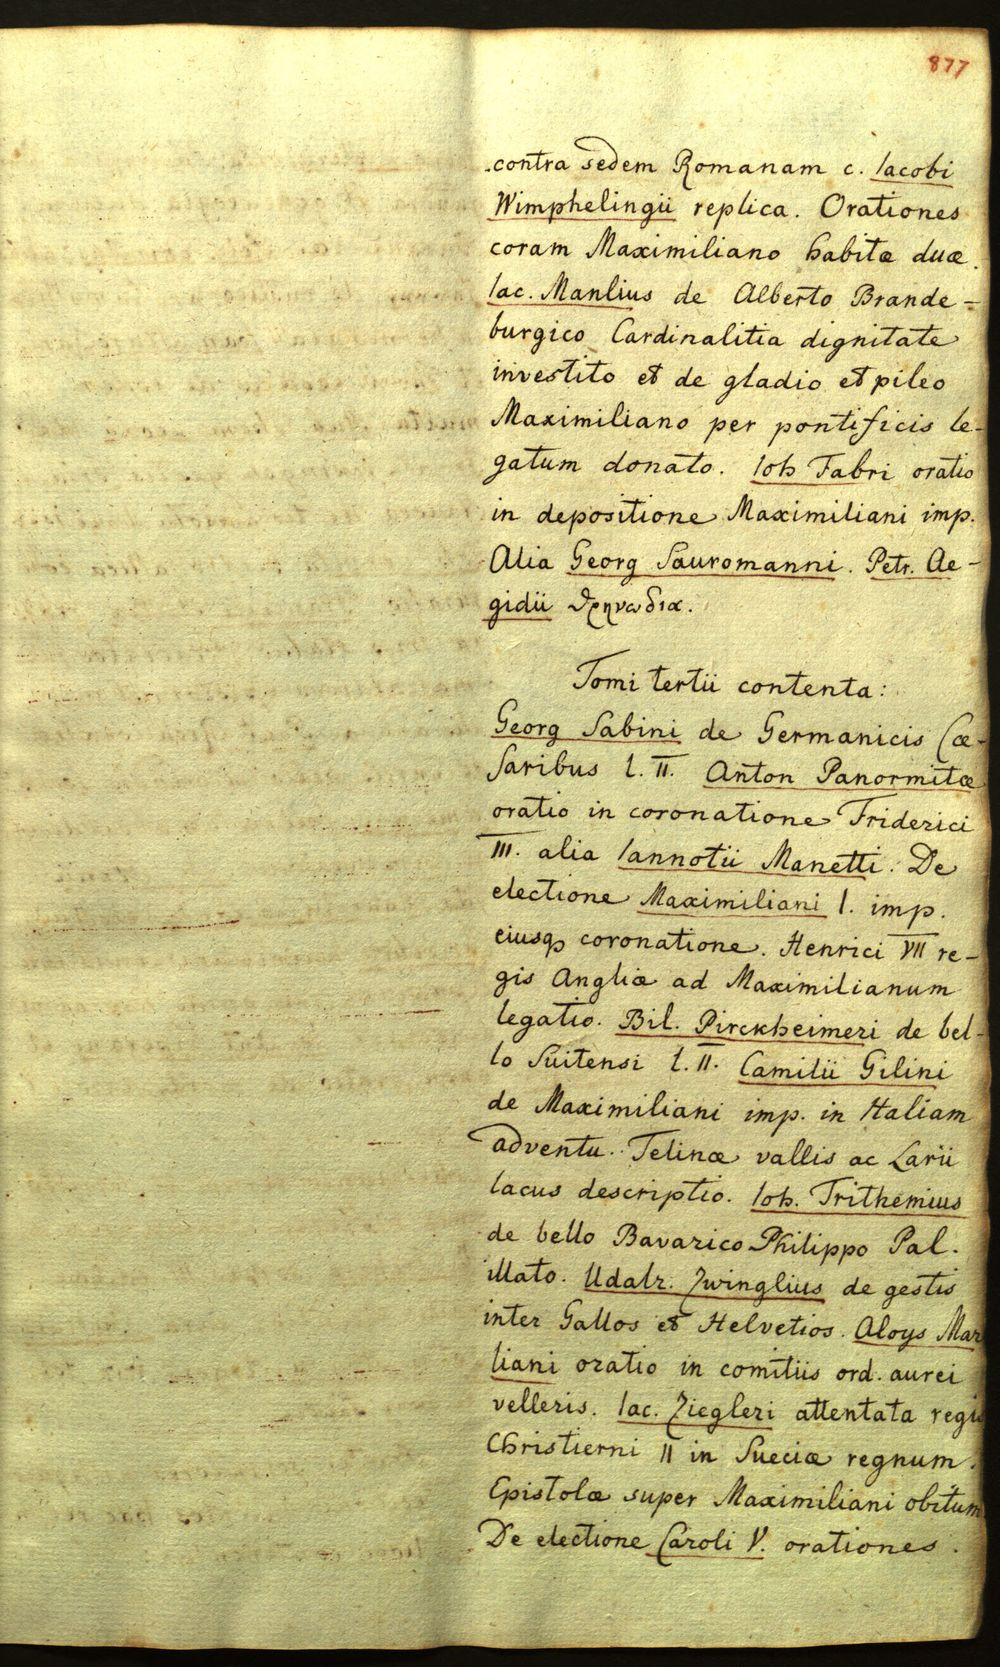 877
contra sedem Romanam c. Iacobi
Wimphelingii replica. Orationes
coram Maximiliano habitæ duæ.
Iac. Manlius de Alberto Brande-
burgico Cardinalitia dignitate
investito et de gladio et pileo
Maximiliano per pontificis le-
gatum donato. Ioh Fabri oratio
in depositione Maximiliani imp.
Alia Georg Sauromanni. Petr. Ae-
gidii θρηνωδια.
Tomi tertii contenta:
Georg Sabini de Germanicis Cæ-
saribus l. II. Anton Panormitæ
oratio in coronatione Friderici
III. alia Iannotii Manetti. De
electione Maximiliani I. imp.
eiusq coronatione. Henrici VII re-
gis Angliæ ad Maximilianum
legatio. Bil. Pirckheimeri de bel-
lo Suitensi l. II. Camilii Gilini
de Maximiliani imp. in Italiam
adventu. Telinæ vallis ac Larii
lacus descriptio. Ioh. Trithemius
de bello Bavarico Philippo Pal.
illato. Udalr. Zwinglius de gestis
inter Gallos et Helvetios. Aloys Mar
liani oratio in comitiis ord. aurei
velleris. Iac. Ziegleri attentata regis
Christierni II in Sueciæ regnum.
Epistolæ super Maximiliani obitum
De electione Caroli V. orationes.